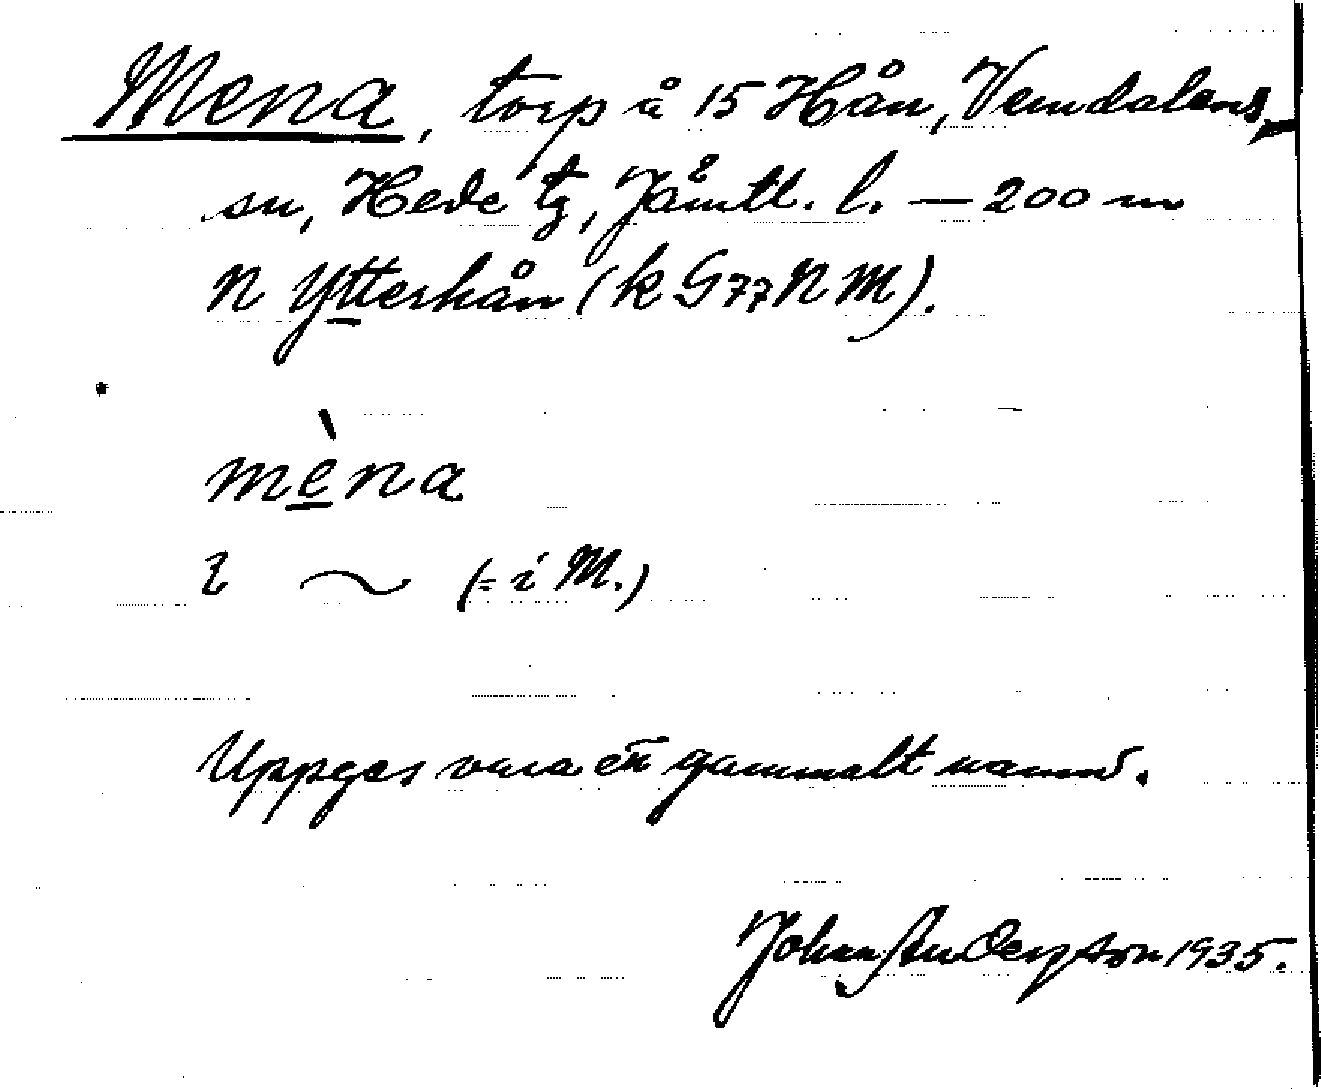 Mena, torp å 15 Hån, Vemdalens
sn, Hede tg, Jämtl. l. — 200 m
N Ytterhån (k G77 N M).
mèna
i ~ (= i M.)
Uppges vara ett gammalt namn.
Johan Anderson 1935.